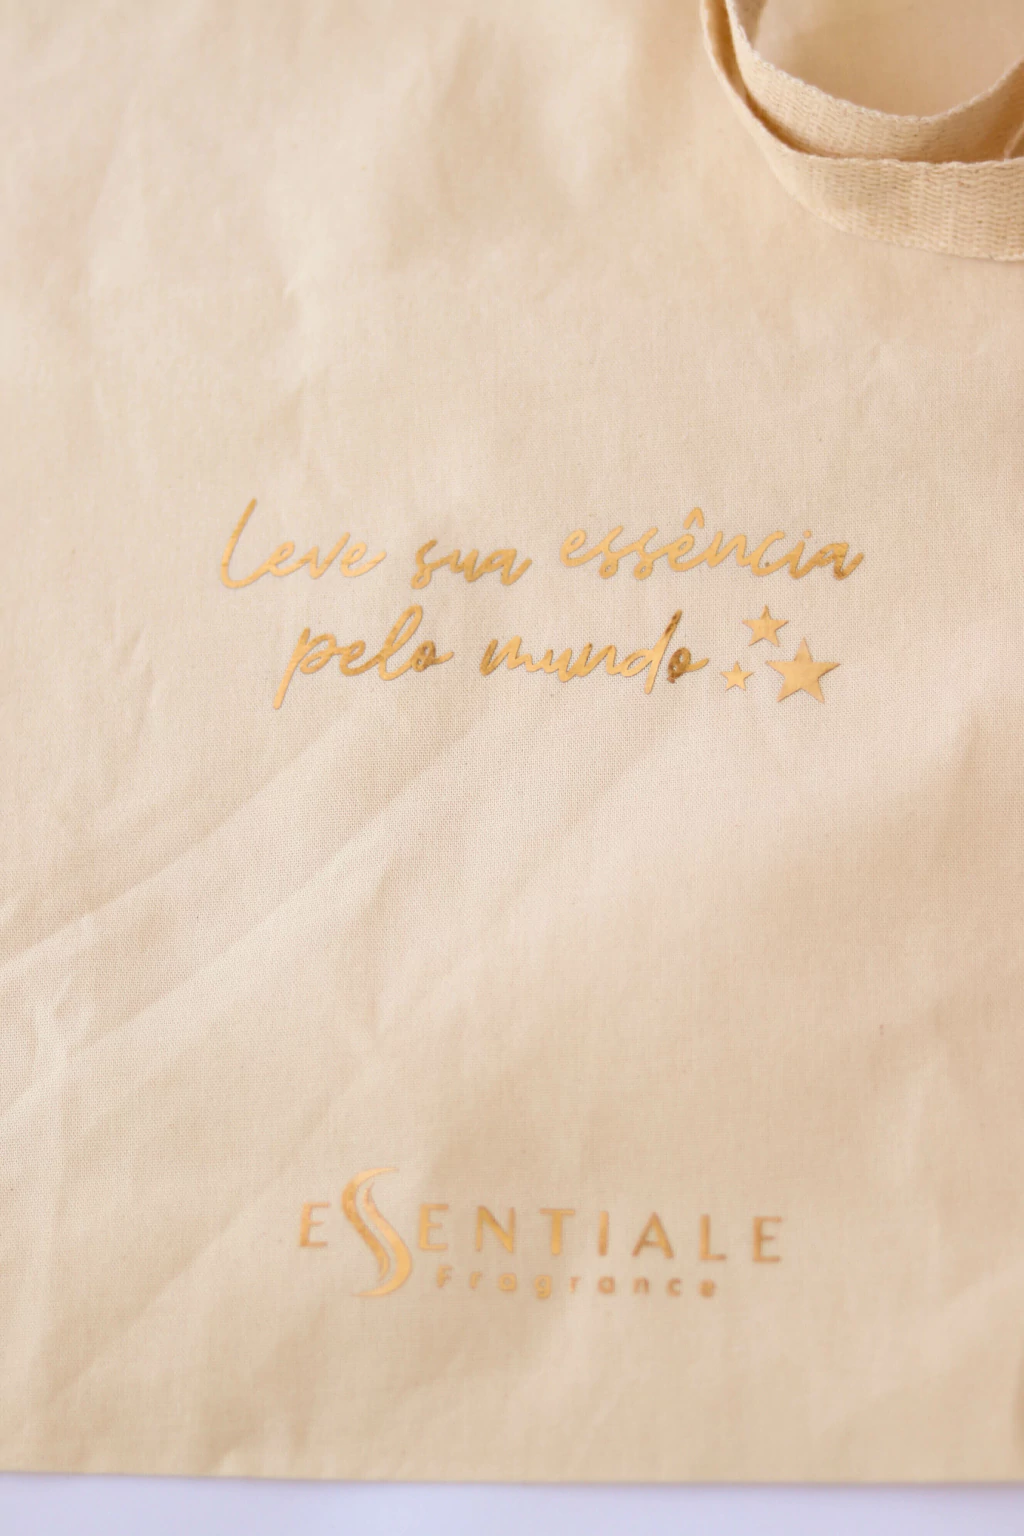 Leve sua essência
pelo mundo
ESSENTIALE
Fragrance